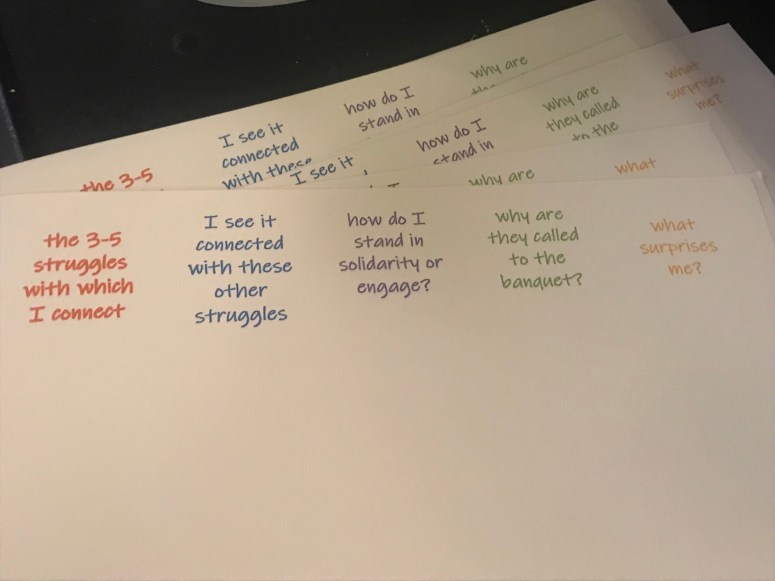 why are
how do I
stand in
what
surprises
me?
why are
they called
to the
I see it
connected
with these
how do I
stand in
I see it
the 3-5
why are
what
the 3-5
struggles
with which
I connect
I see it
connected
with these
other
struggles
how do I
stand in
solidarity or
engage?
why are
they called
to the
banquet?
what
surprises
me?